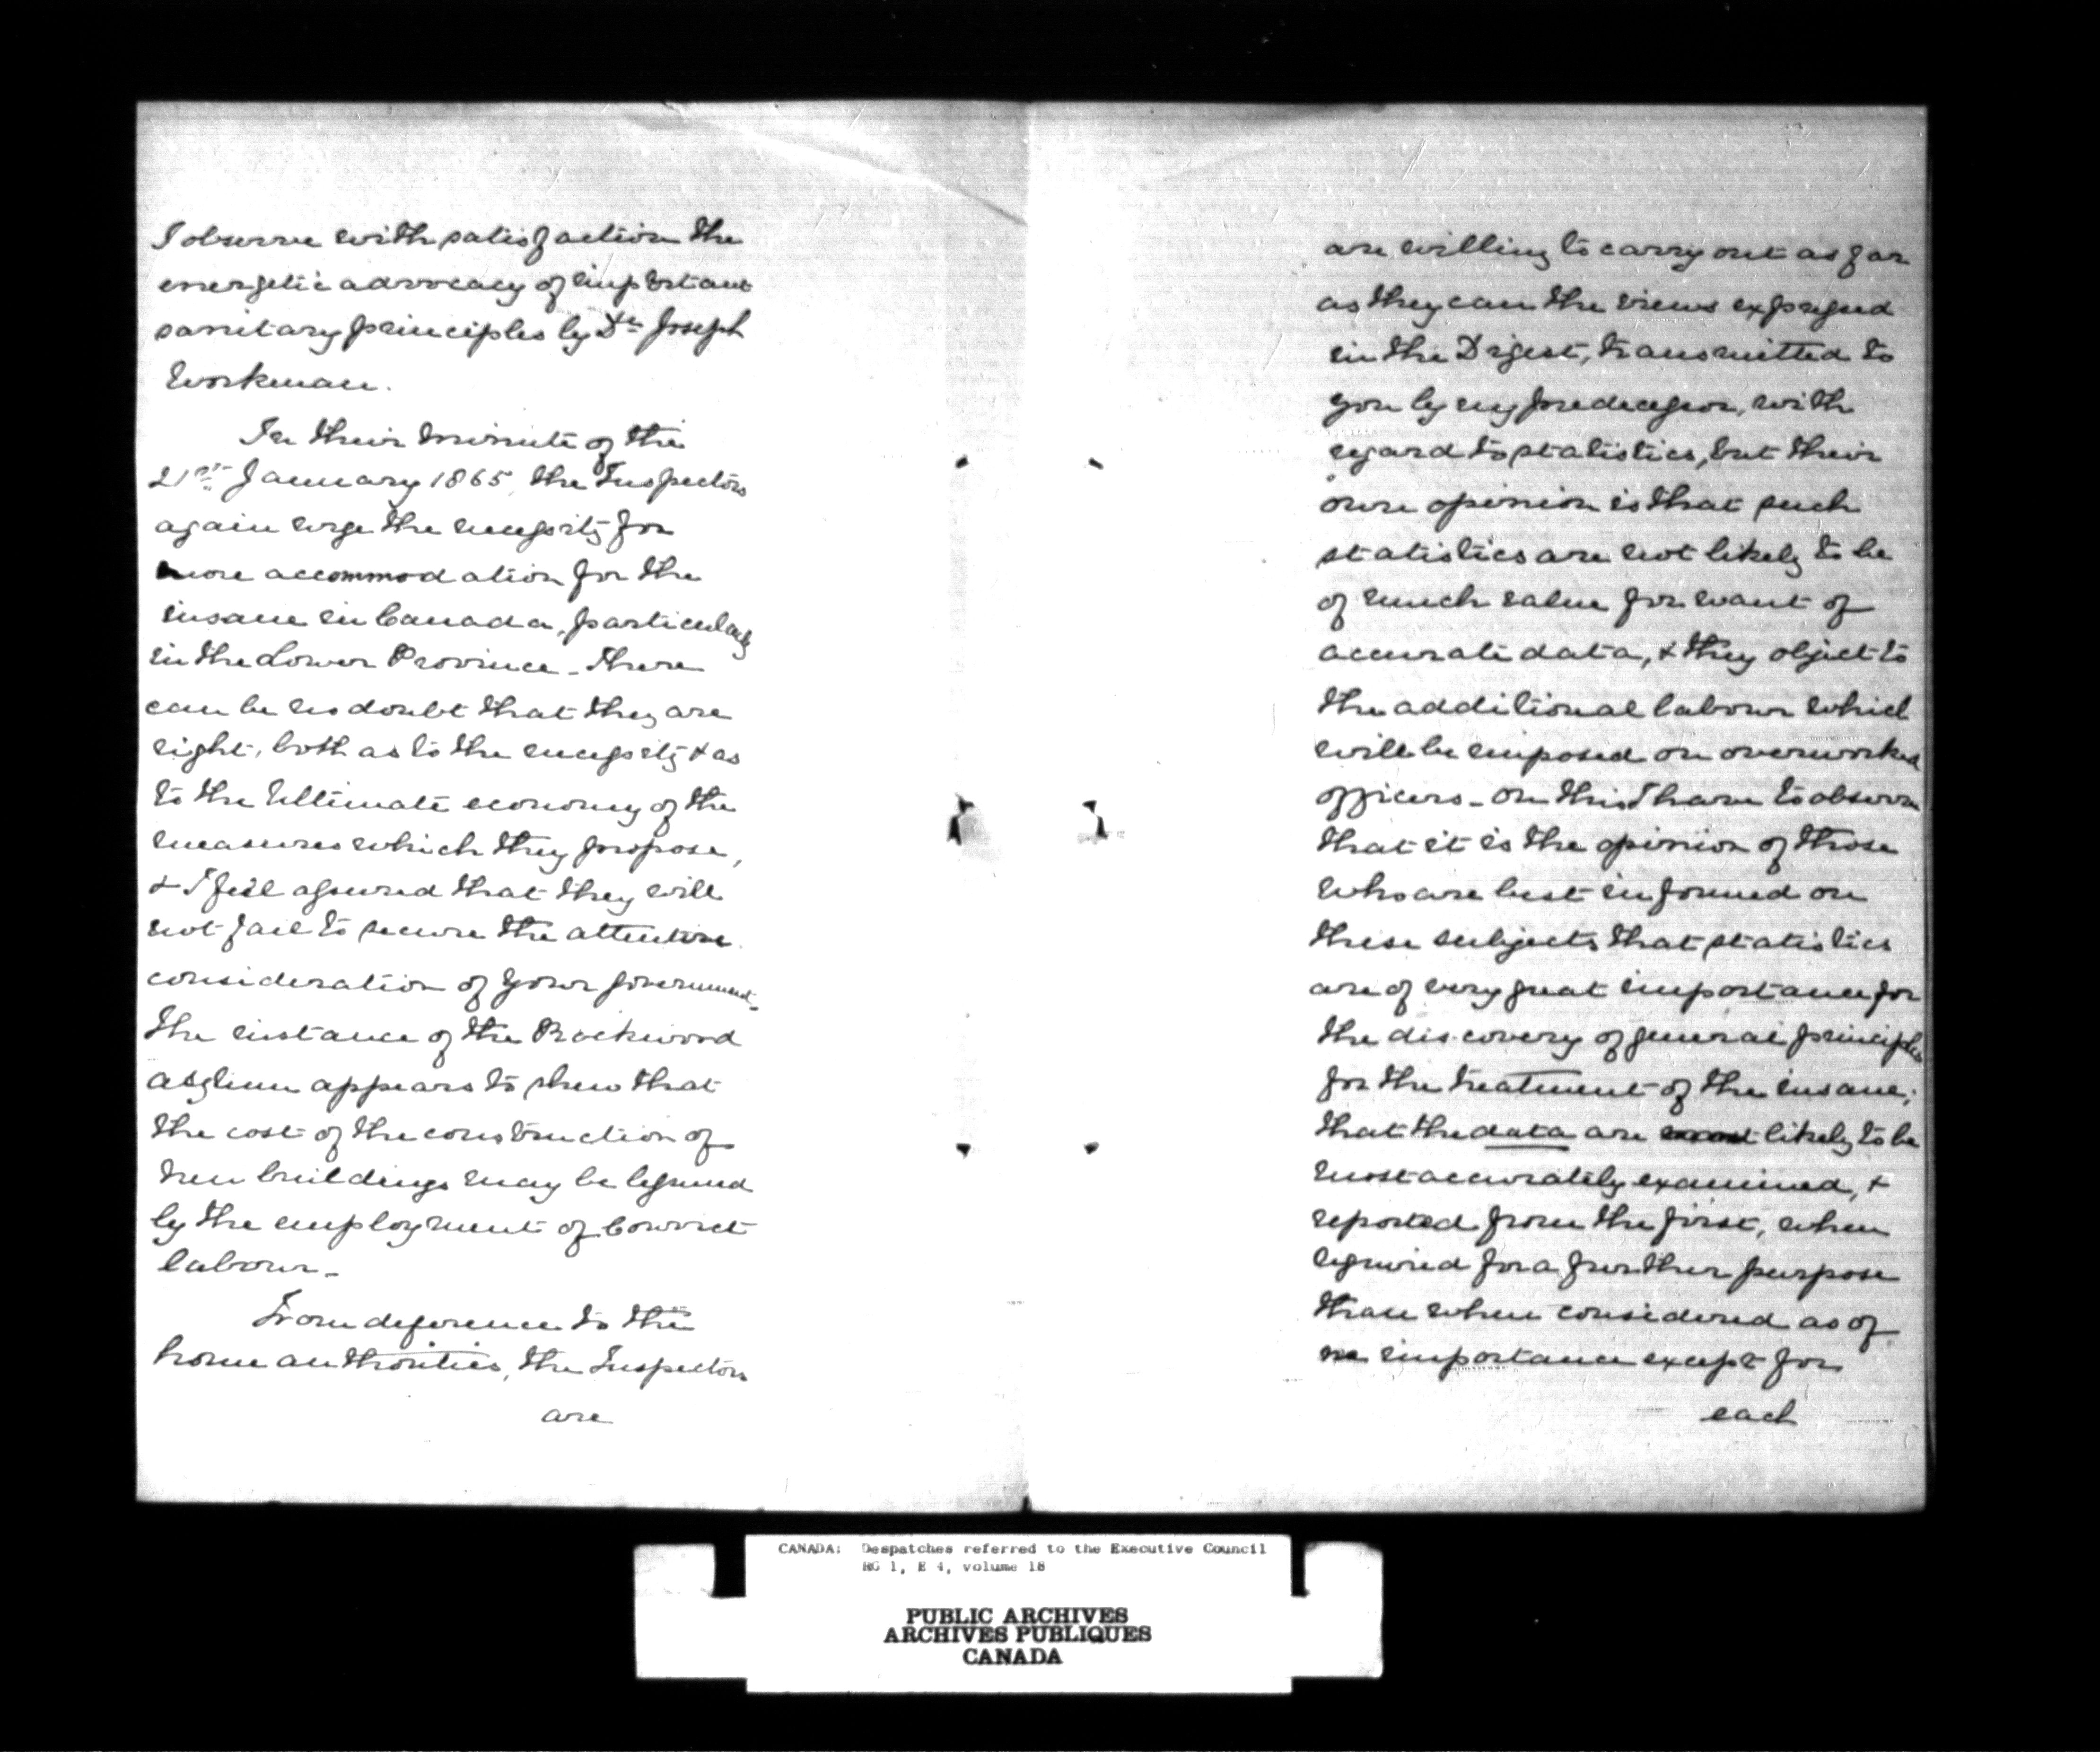 I observe with satisfaction the
energetic advocacy of important
sanitary principles by Dr Joseph
Workman.
In their minute of the
21st January 1865, the Inspectors
again urge the necessity for
more accommodation for the
insane in Canada, particularly
in the Lower Province - There
can be no doubt that they are
right, both as to the necessity & as
to the ultimate economy of the
measures which they propose,
& I feel assured that they will
not fail to secure the attentive
consideration of your Government -
The instance of the Rockwood
asylum appears to shew that
the cost of the construction of
new buildings may be lessened
by the employment of Convict
labour -
From deference to the
home authorities, the Inspectors
are
are willing to carry out as far
as they can the views expressed
in the Digest, transmitted to
you by my predecessor, with
regard to statistics, but their
own opinion is that such
statistics are not likely to be
of much value for want of
accurate data, & they object to
the additional labour which
will be imposed on overworked
officers - On this I have to observe
that it is the opinion of those
who are best informed on
these subjects that statistics
are of very great importance for
the discovery of general principles
for the treatment of the insane;
that the data are likely to be
most accurately examined, &
reported from the first, when
required for a further purpose
than when considered as of
no importance except for
each
CANADA: Despatches referred to the Executive Council
RG 1, E 4, volume 18
PUBLIC ARCHIVES
ARCHIVES PUBLIQUES
CANADA